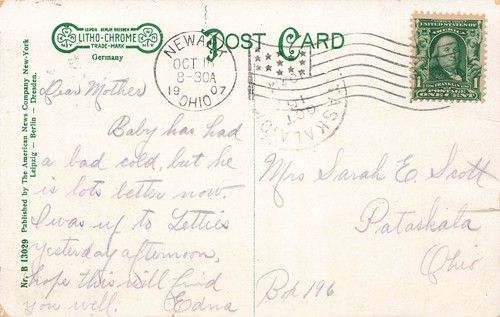 LEIPZIG BERLIN DRESDEN
LITHO-CHROME
TRADE-MARK
Germany
POST CARD
NEWARK
OCT
8-30A
1907
OHIO
PATASKALA, O
OCT
UNITED STATES OF AMERICA
FRANKLIN
POSTAGE
ONE CENT
Nr. B 13029 Published by The American News Company New-York
Leipzig – Berlin – Dresden.
Dear Mother
Baby has had
a bad cold, but he
is lots better now.
I was up to Letties
yesterday afternoon,
hope this will find
you well. Edna
Mrs Sarah E. Scott
Pataskala
Ohio
Box 196